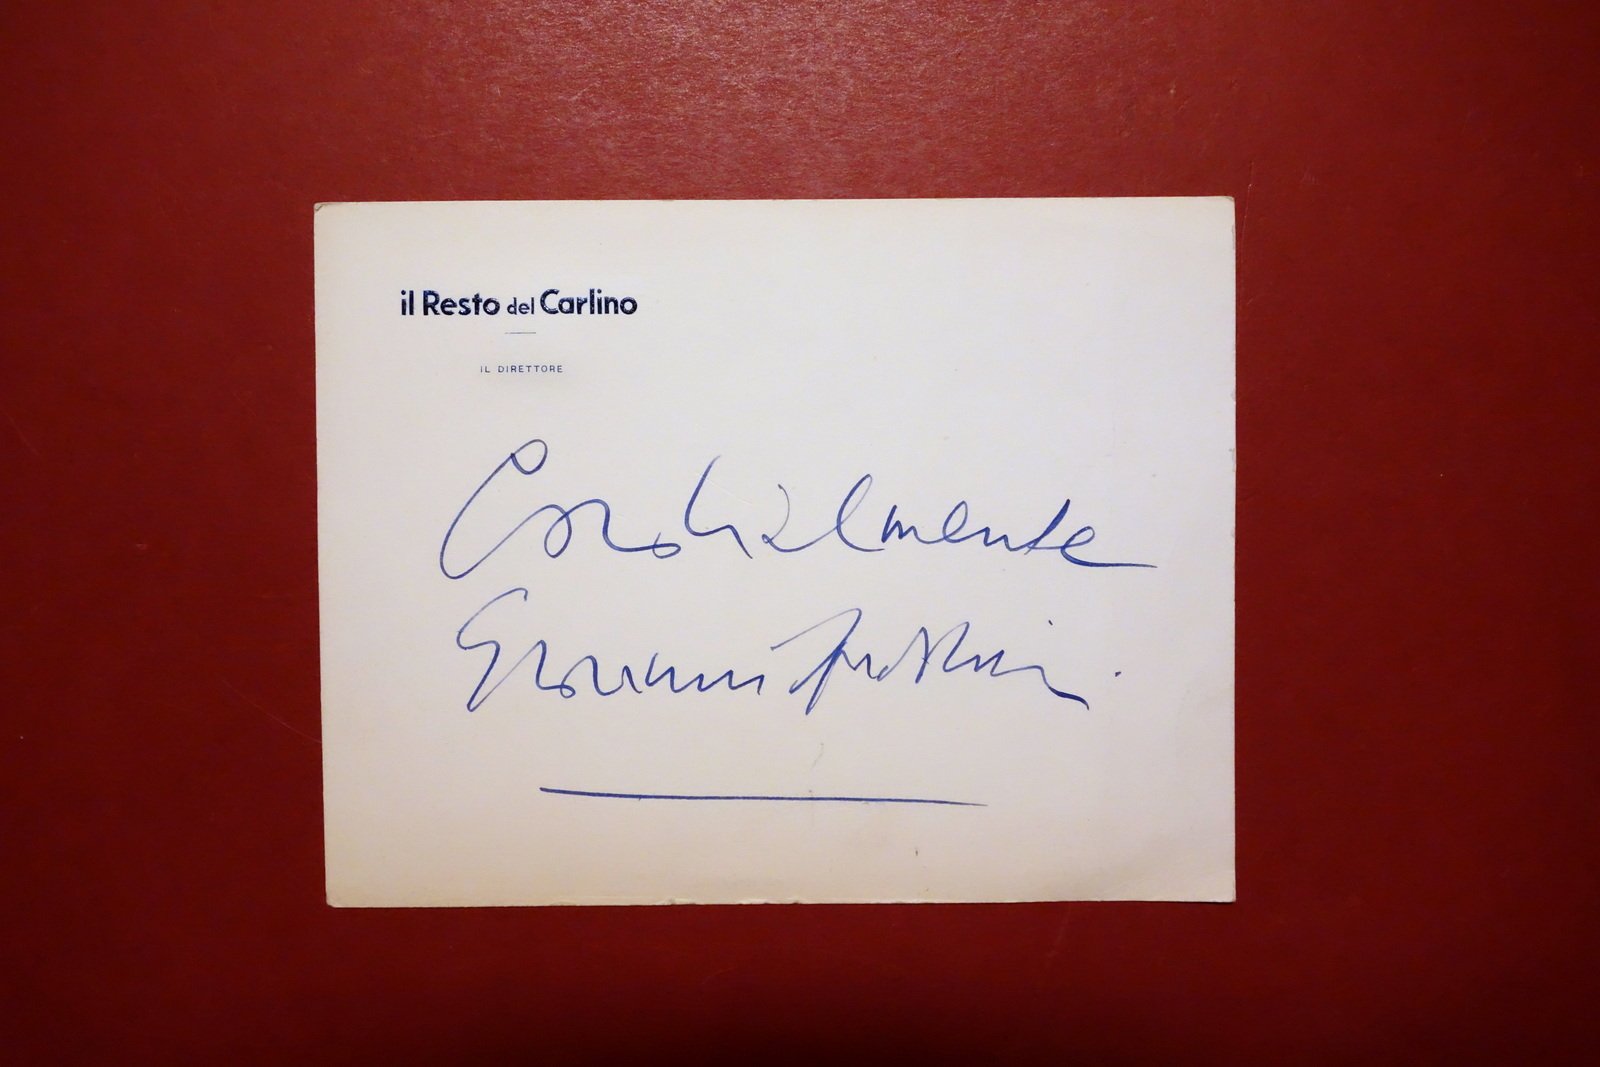 il Resto del Carlino
IL DIRETTORE
Cordialmente
Giovanni Spadolini